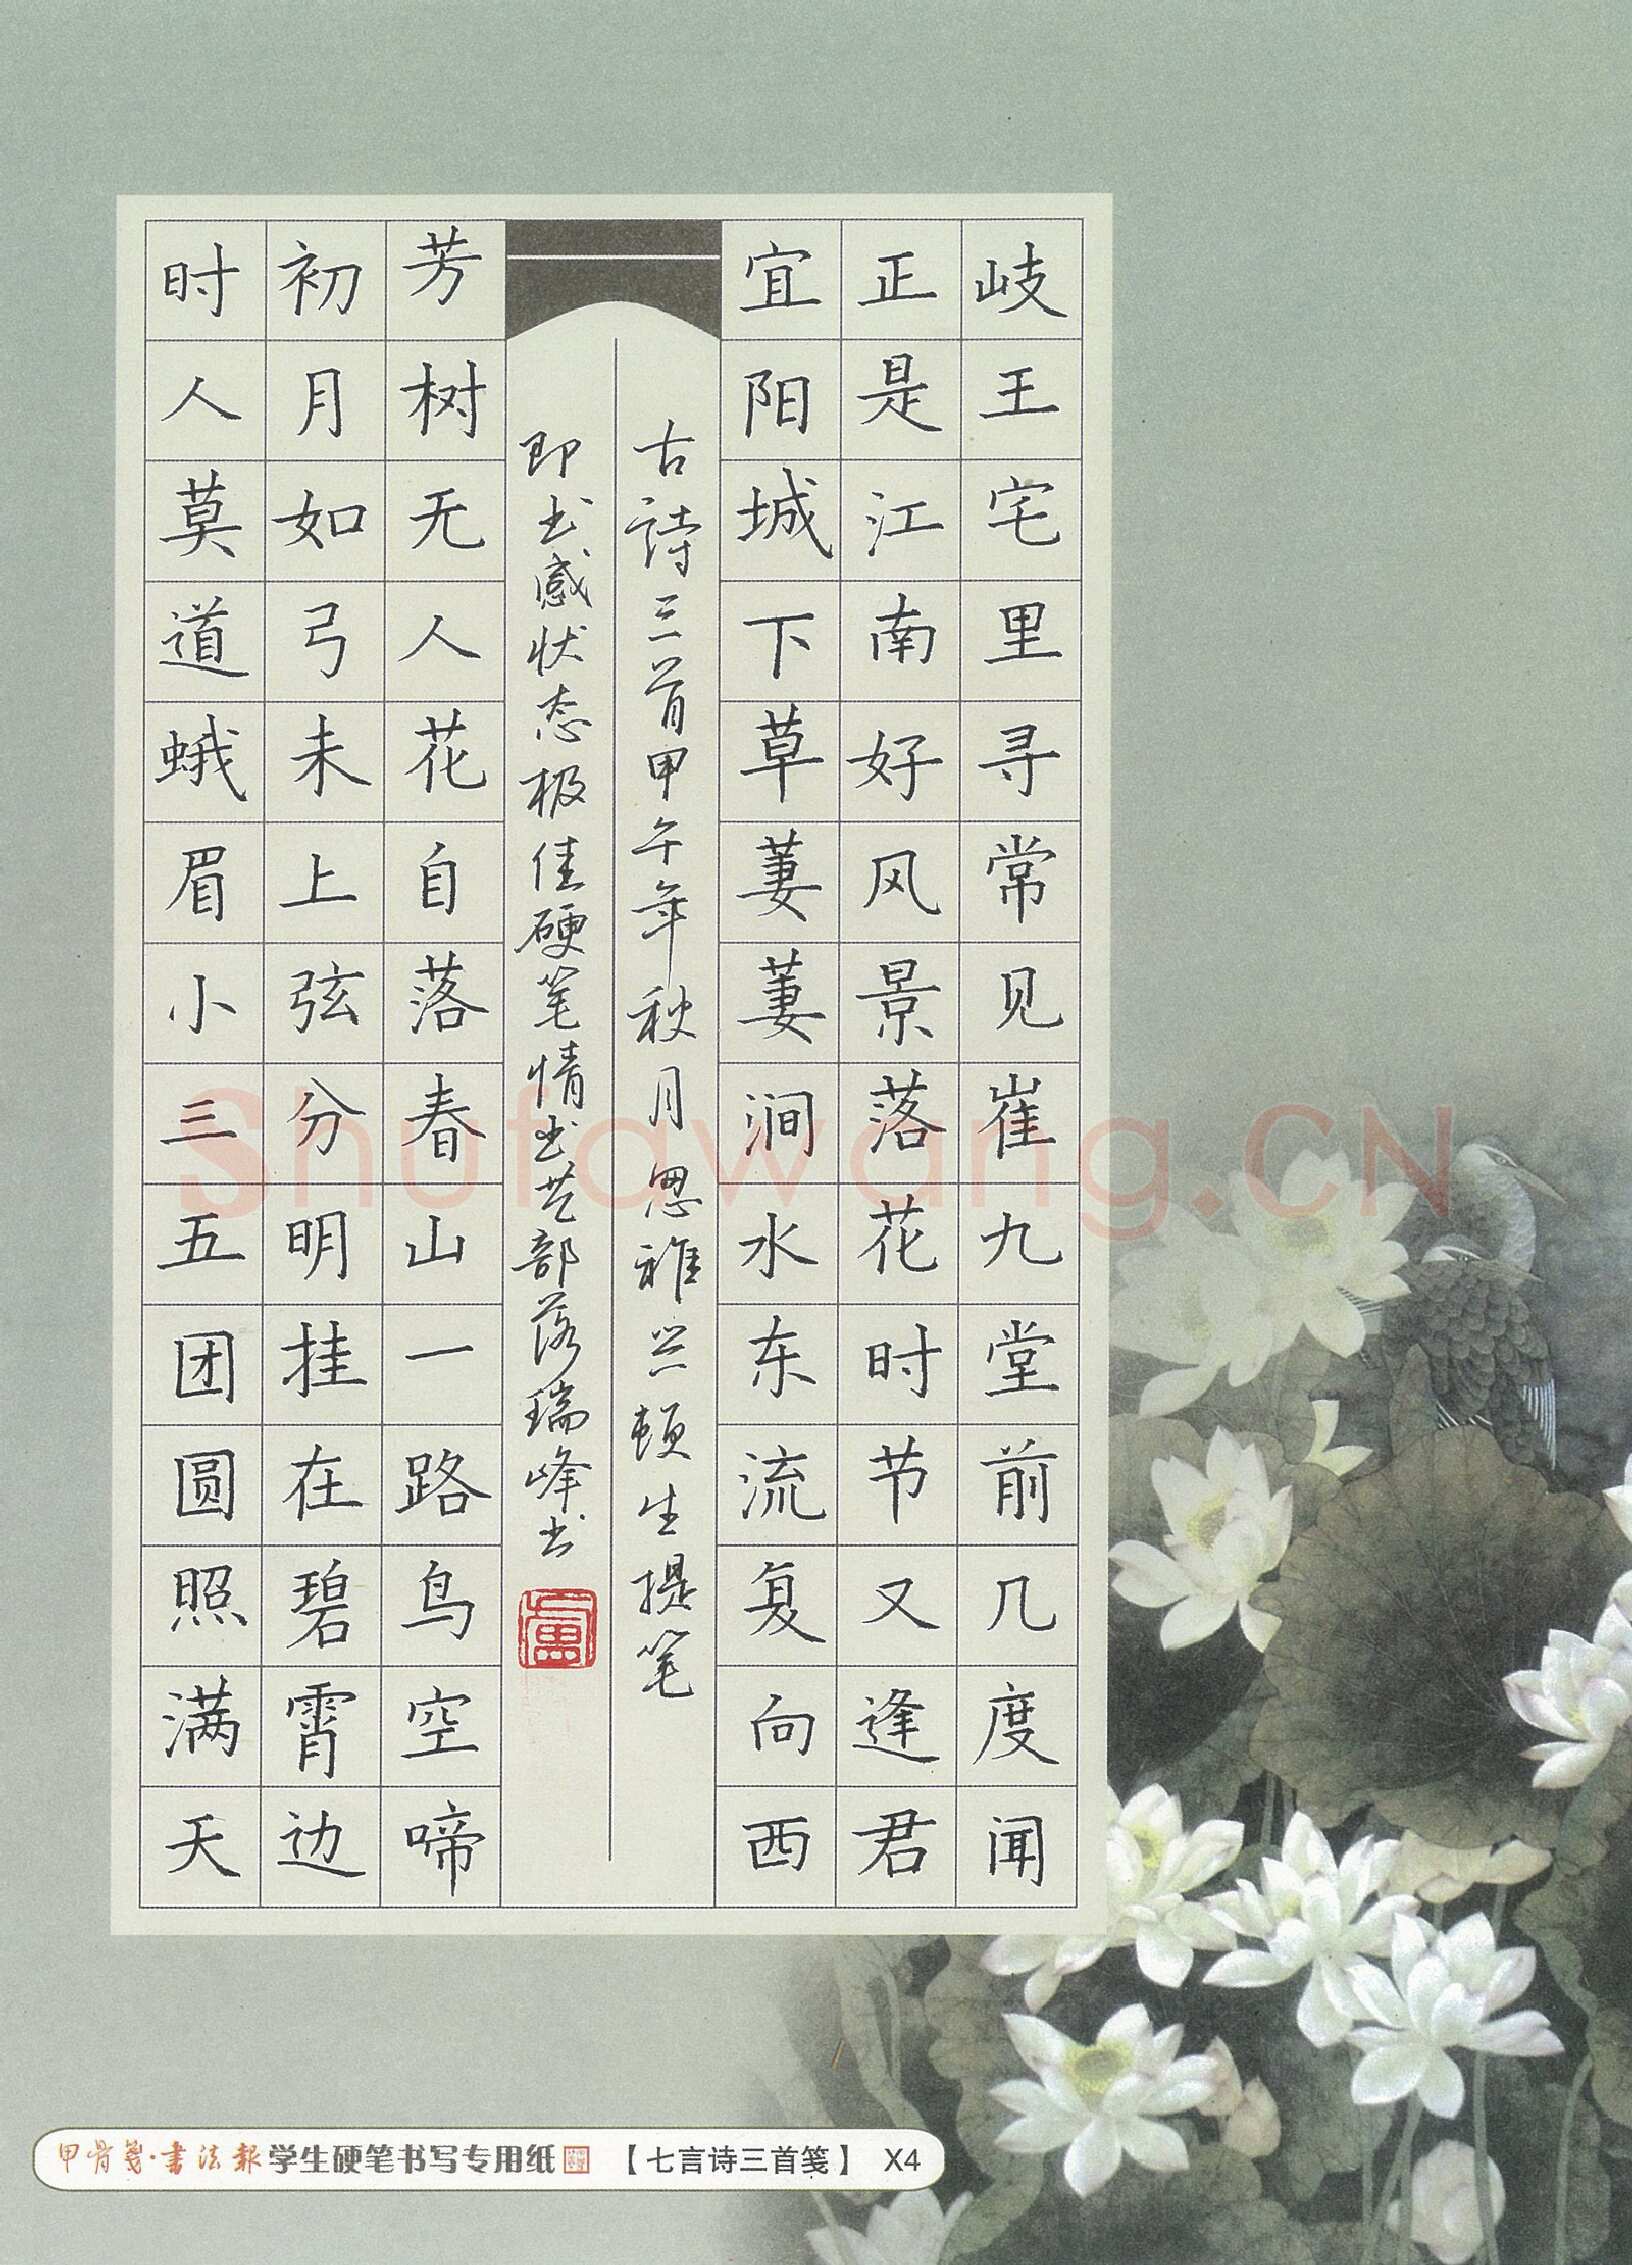 岐王宅里寻常见崔九堂前几度闻
正是江南好风景落花时节又逢君
宜阳城下草萋萋涧水东流复向西
古诗三首甲午年秋月思雅兰顿生提笔
即书感状态极佳硬笔情书艺部落瑞峰书
芳树无人花自落春山一路鸟空啼
初月如弓未上弦分明挂在碧霄边
时人莫道蛾眉小三五团圆照满天
Shufawang.CN
甲骨笺·书法报学生硬笔书写专用纸【七言诗三首笺】 X4